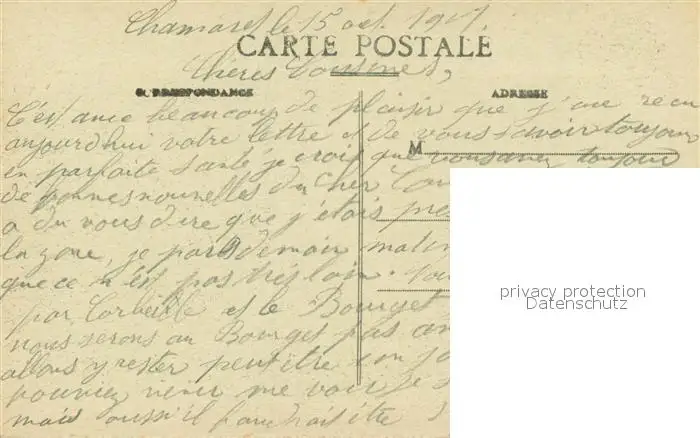 Chamaret le 15 oct. 1917.
CARTE POSTALE
Chères Cousines,
CORRESPONDANCE
ADRESSE
C'est avec beaucoup de plaisir que j'ai recu
aujourdhui votre lettre et de vous savoir toujour
M
en parfaite santé je crois que vous avez toujour
de bonnes nouvelles du cher
a du vous dire que j'étais
la zone, je pars demain matin
que ce n'est pas très loin.
par Corbeille et le Bourget
nous serons au Bourget pas
allons y rester peut être
pouviez venir me voir je
mais aussi il faudrait être
privacy protection
Datenschutz